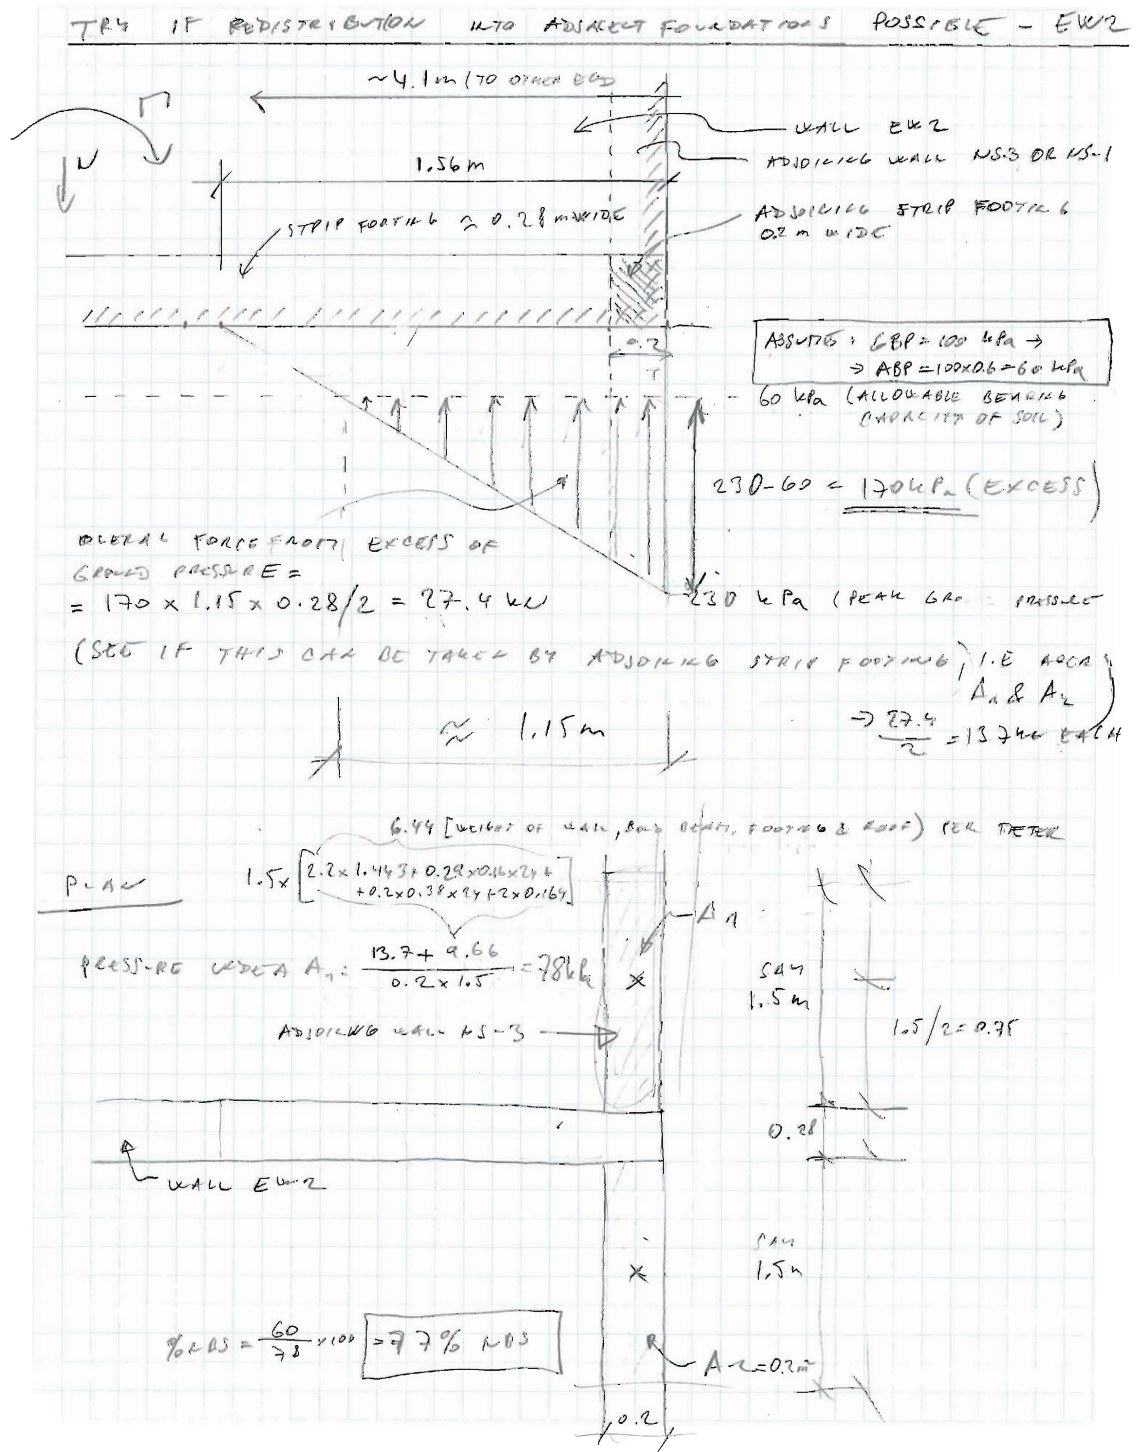 TRY IF REDISTRIBUTION INTO ADJACECT FOUNDATIONS POSSIBLE - EW2
~4.1m (TO OTHER END
N
WALL EW2
ADJOINING WALL NS-3 OR NS-1
1.56m
STRIP FOOTING ≈ 0.28 m WIDE
ADJOINING STRIP FOOTING
0.2 m WIDE
0.2
ASSUME: GBP = 100 kPa →
→ ABP = 100x0.6 = 60 kPa
60 kPa (ALLOWABLE BEARING
CAPACITY OF SOIL)
230-60 = 170 kPa (EXCESS)
OVERAL FORCE FROM EXCESS OF
GROUND PRESSURE =
= 170 x 1.15 x 0.28/2 = 27.4 kN
230 kPa (PEAK GRO PRESSURE
(SEE IF THIS CAN BE TAKEN BY ADJOINING STRIP FOOTING, I.E
A1 & A2
→ 27.4/2 = 13.7 EACH
≈ 1.15m
6.44 [WEIGHT OF WALL, BOND BEAM, FOOTING & ROOF) PER METER
PLAN
1.5x[2.2x1.443+0.28x0.16x24+
+0.2x0.38x24+2x0.164]
A1
PRESSURE UNDER A1: 13.7 + 9.66 / 0.2 x 1.5 = 78kPa
SAY
1.5m
1.5/2=0.75
ADJOINING WALL NS-3
0.28
WALL EW2
SAY
1.5m
%NBS = 60/78 x100 = 77% NBS
A2=0.2m²
0.2